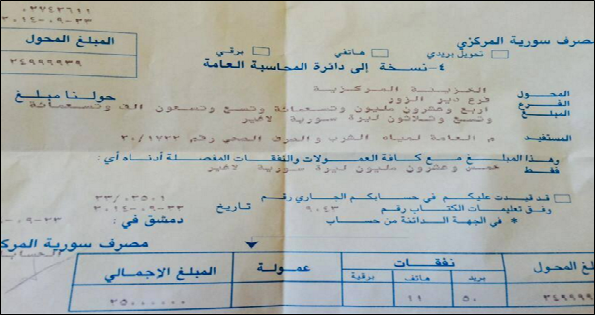 ٢٠١٤-٠٩-٢٣
مصرف سورية المركزي
المبلغ المحول
تمويل بريدي هاتفي برقي
٢٤٩٩٩٩٣٩
٤- نسخة إلى دائرة المحاسبة العامة
المحول الخزينة المركزية
حولنا مبلغ
الفرع فرع دير الزور
المبلغ اربع وعشرون مليون وتسعمائة وتسع وتسعون الف وتسعمائة
وتسع وثلاثون ليرة سورية لاغير
المستفيد م العامة لمياه الشرب والصرف الصحي رقم
وهذا المبلغ مع كافة العمولات والنفقات المفصلة أدناه أي:
فقط خمس وعشرون مليون ليرة سورية لاغير
قد قيدت عليكم في حسابكم الجاري رقم
وفق تعليمات الكتاب رقم ٩٠٤٣ تاريخ ٢٠١٤-٠٩-٢٣
* في الجهة الدائنة من حساب
دمشق في: ٠٩-٢٣
مصرف سورية المركز
المبلغ المحول نفقات عمولة المبلغ الإجمالي
بريد هاتف برقية
٢٤٩٩٩٩ ٥٠ ١١ ٢٥٠٠٠٠٠٠